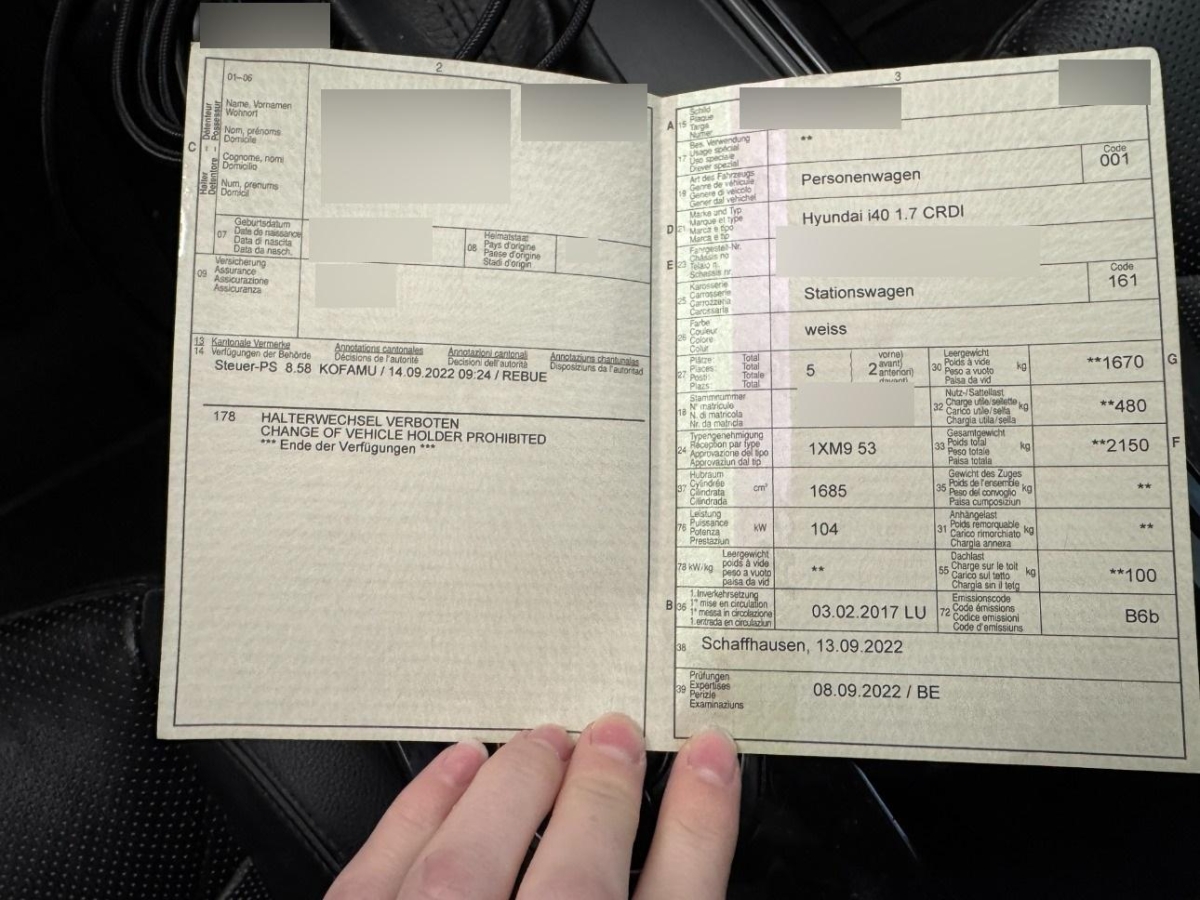 2
01–06
Name, Vornamen
Wohnort
Nom, prénoms
Domicile
Cognome, nomi
Domicilio
Num, prenums
Domicil
C
Halter – Détenteur
Detentore – Possessur
07
Geburtsdatum
Date de naissance
Data di nascita
Data da nasch.
08
Heimatstaat
Pays d'origine
Paese d'origine
Stadi d'origin
09
Versicherung
Assurance
Assicurazione
Assicuranza
13
14
Kantonale Vermerke Annotations cantonales Annotazioni cantonali Annotaziuns chantunalas
Verfügungen der Behörde Décisions de l'autorité Decisioni dell'autorità Disposiziuns da l'autoritad
Steuer-PS 8.58 KOFAMU / 14.09.2022 09:24 / REBUE
178 HALTERWECHSEL VERBOTEN
CHANGE OF VEHICLE HOLDER PROHIBITED
*** Ende der Verfügungen ***
3
A
15
Schild
Plaque
Targa
Numer
17
Bes. Verwendung
Usage spécial
Uso speciale
Diever spezial
**
Art des Fahrzeugs
Genre de véhicule
Genere di veicolo
Gener dal vehichel
Personenwagen
Code
001
D
21
Marke und Typ
Marque et type
Marca e tipo
Marca e tip
Hyundai i40 1.7 CRDI
E
23
Fahrgestell-Nr.
Châssis no
Telaio n.
Schassis nr.
25
Karosserie
Carrosserie
Carrozzeria
Carossaria
Stationswagen
Code
161
26
Farbe
Couleur
Colore
Colur
weiss
27
Plätze Total
Places: Total
Posti: Totale
Plazs: Total
5
2
vorne)
avant)
anteriori)
davant)
30
Leergewicht
Poids à vide
Peso a vuoto
Paisa da vid
kg
**1670
G
18
Stammnummer
N° matricule
N. di matricola
Nr. da matricla
32
Nutz-/Sattellast
Charge utile/sellette
Carico utile/sella
Chargia utila/sella
kg
**480
24
Typengenehmigung
Réception par type
Approvazione del tipo
Approvaziun dal tip
1XM9 53
33
Gesamtgewicht
Poids total
Peso totale
Paisa totala
kg
**2150
F
37
Hubraum
Cylindrée
Cilindrata
Cilindrada
cm³
1685
35
Gewicht des Zuges
Poids de l'ensemble
Peso del convoglio
Paisa cumposiziun
kg
**
76
Leistung
Puissance
Potenza
Prestaziun
kW
104
31
Anhängelast
Poids remorquable
Carico rimorchiato
Chargia annexa
kg
**
78 kW/kg
Leergewicht
poids à vide
peso a vuoto
paisa da vid
**
55
Dachlast
Charge sur le toit
Carico sul tetto
Chargia sin il tetg
kg
**100
B
36
1. Inverkehrsetzung
1re mise en circulation
1a messa in circolazione
1. entrada en circulaziun
03.02.2017 LU
72
Emissionscode
Code émissions
Codice emissioni
Code d'emissiuns
B6b
38
Schaffhausen, 13.09.2022
39
Prüfungen
Expertises
Perizie
Examinaziuns
08.09.2022 / BE